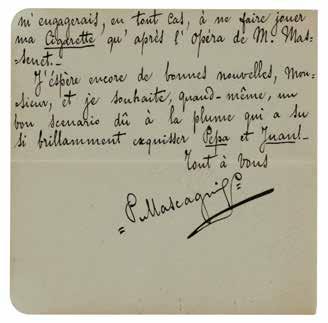 m'engagerais, en tout cas, à ne faire jouer
ma Cigarette qu'après l'Opéra de M. Mas-
senet.-
J'espère encore de bonnes nouvelles, Mon-
sieur, et je souhaite, quand-même, un
bon scenario dû à la plume qui a su
si brillamment exquisser Pépa et Juan!-
Tout à Vous
=P. Mascagni=